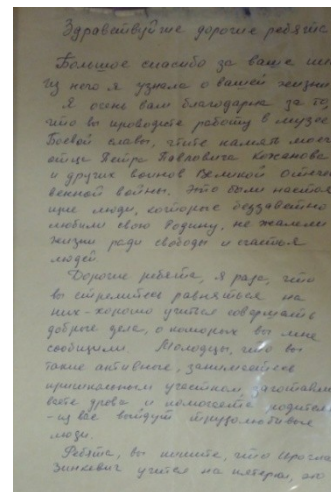 Здравствуйте дорогие ребята
Большое спасибо за ваше
Из него я узнала о вашей жизни
Я очень вам благодарна за то,
что вы проводите работу в музее
Боевой славы, чтите память моего
отца Петра Павловича Кожанова
и других воинов Великой отечест
венной войны. Это были настоя
щие люди, которые беззаветно
любили свою Родину, не жалели
жизни ради свободы и счастья
людей.
Дорогие ребята, я рада, что
вы стремитесь равняться на
них - хорошо учится совершать
добрые дела, о которых вы мне
сообщили. Молодцы, что вы
такие активные, занимаетесь
пришкольным участком
дрова и помогаете
- из вас выйдут трудолюбивые
люди.
Ребята, вы пишите, что
Зинкевич учится на пятерки, это